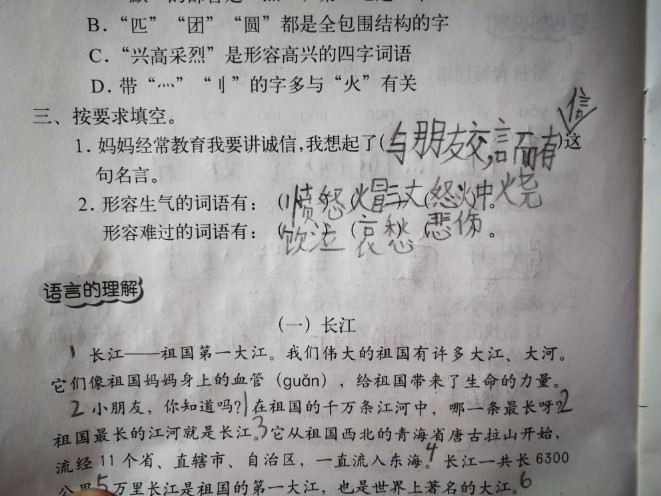 B. “匹”“团”“圆”都是全包围结构的字
C. “兴高采烈”是形容高兴的四字词语
D. 带“灬”“刂”的字多与“火”有关
三、按要求填空。
信
1. 妈妈经常教育我要讲诚信,我想起了(与朋友交,言而有)这
句名言。
2. 形容生气的词语有：(愤怒)(火冒三丈)(怒火中烧)。
形容难过的词语有：(饮泣)(哀愁)(悲伤)。
语言的理解
(一) 长江
1 长江——祖国第一大江。我们伟大的祖国有许多大江、大河。
它们像祖国妈妈身上的血管 (guǎn)，给祖国带来了生命的力量。
2 小朋友，你知道吗?1在祖国的千万条江河中，哪一条最长呀?2
祖国最长的江河就是长江。3它从祖国西北的青海省唐古拉山开始，
流经 11 个省、直辖市、自治区，一直流入东海。4长江一共长 6300
公里5万里长江是祖国的第一大江，也是世界上著名的大江。6